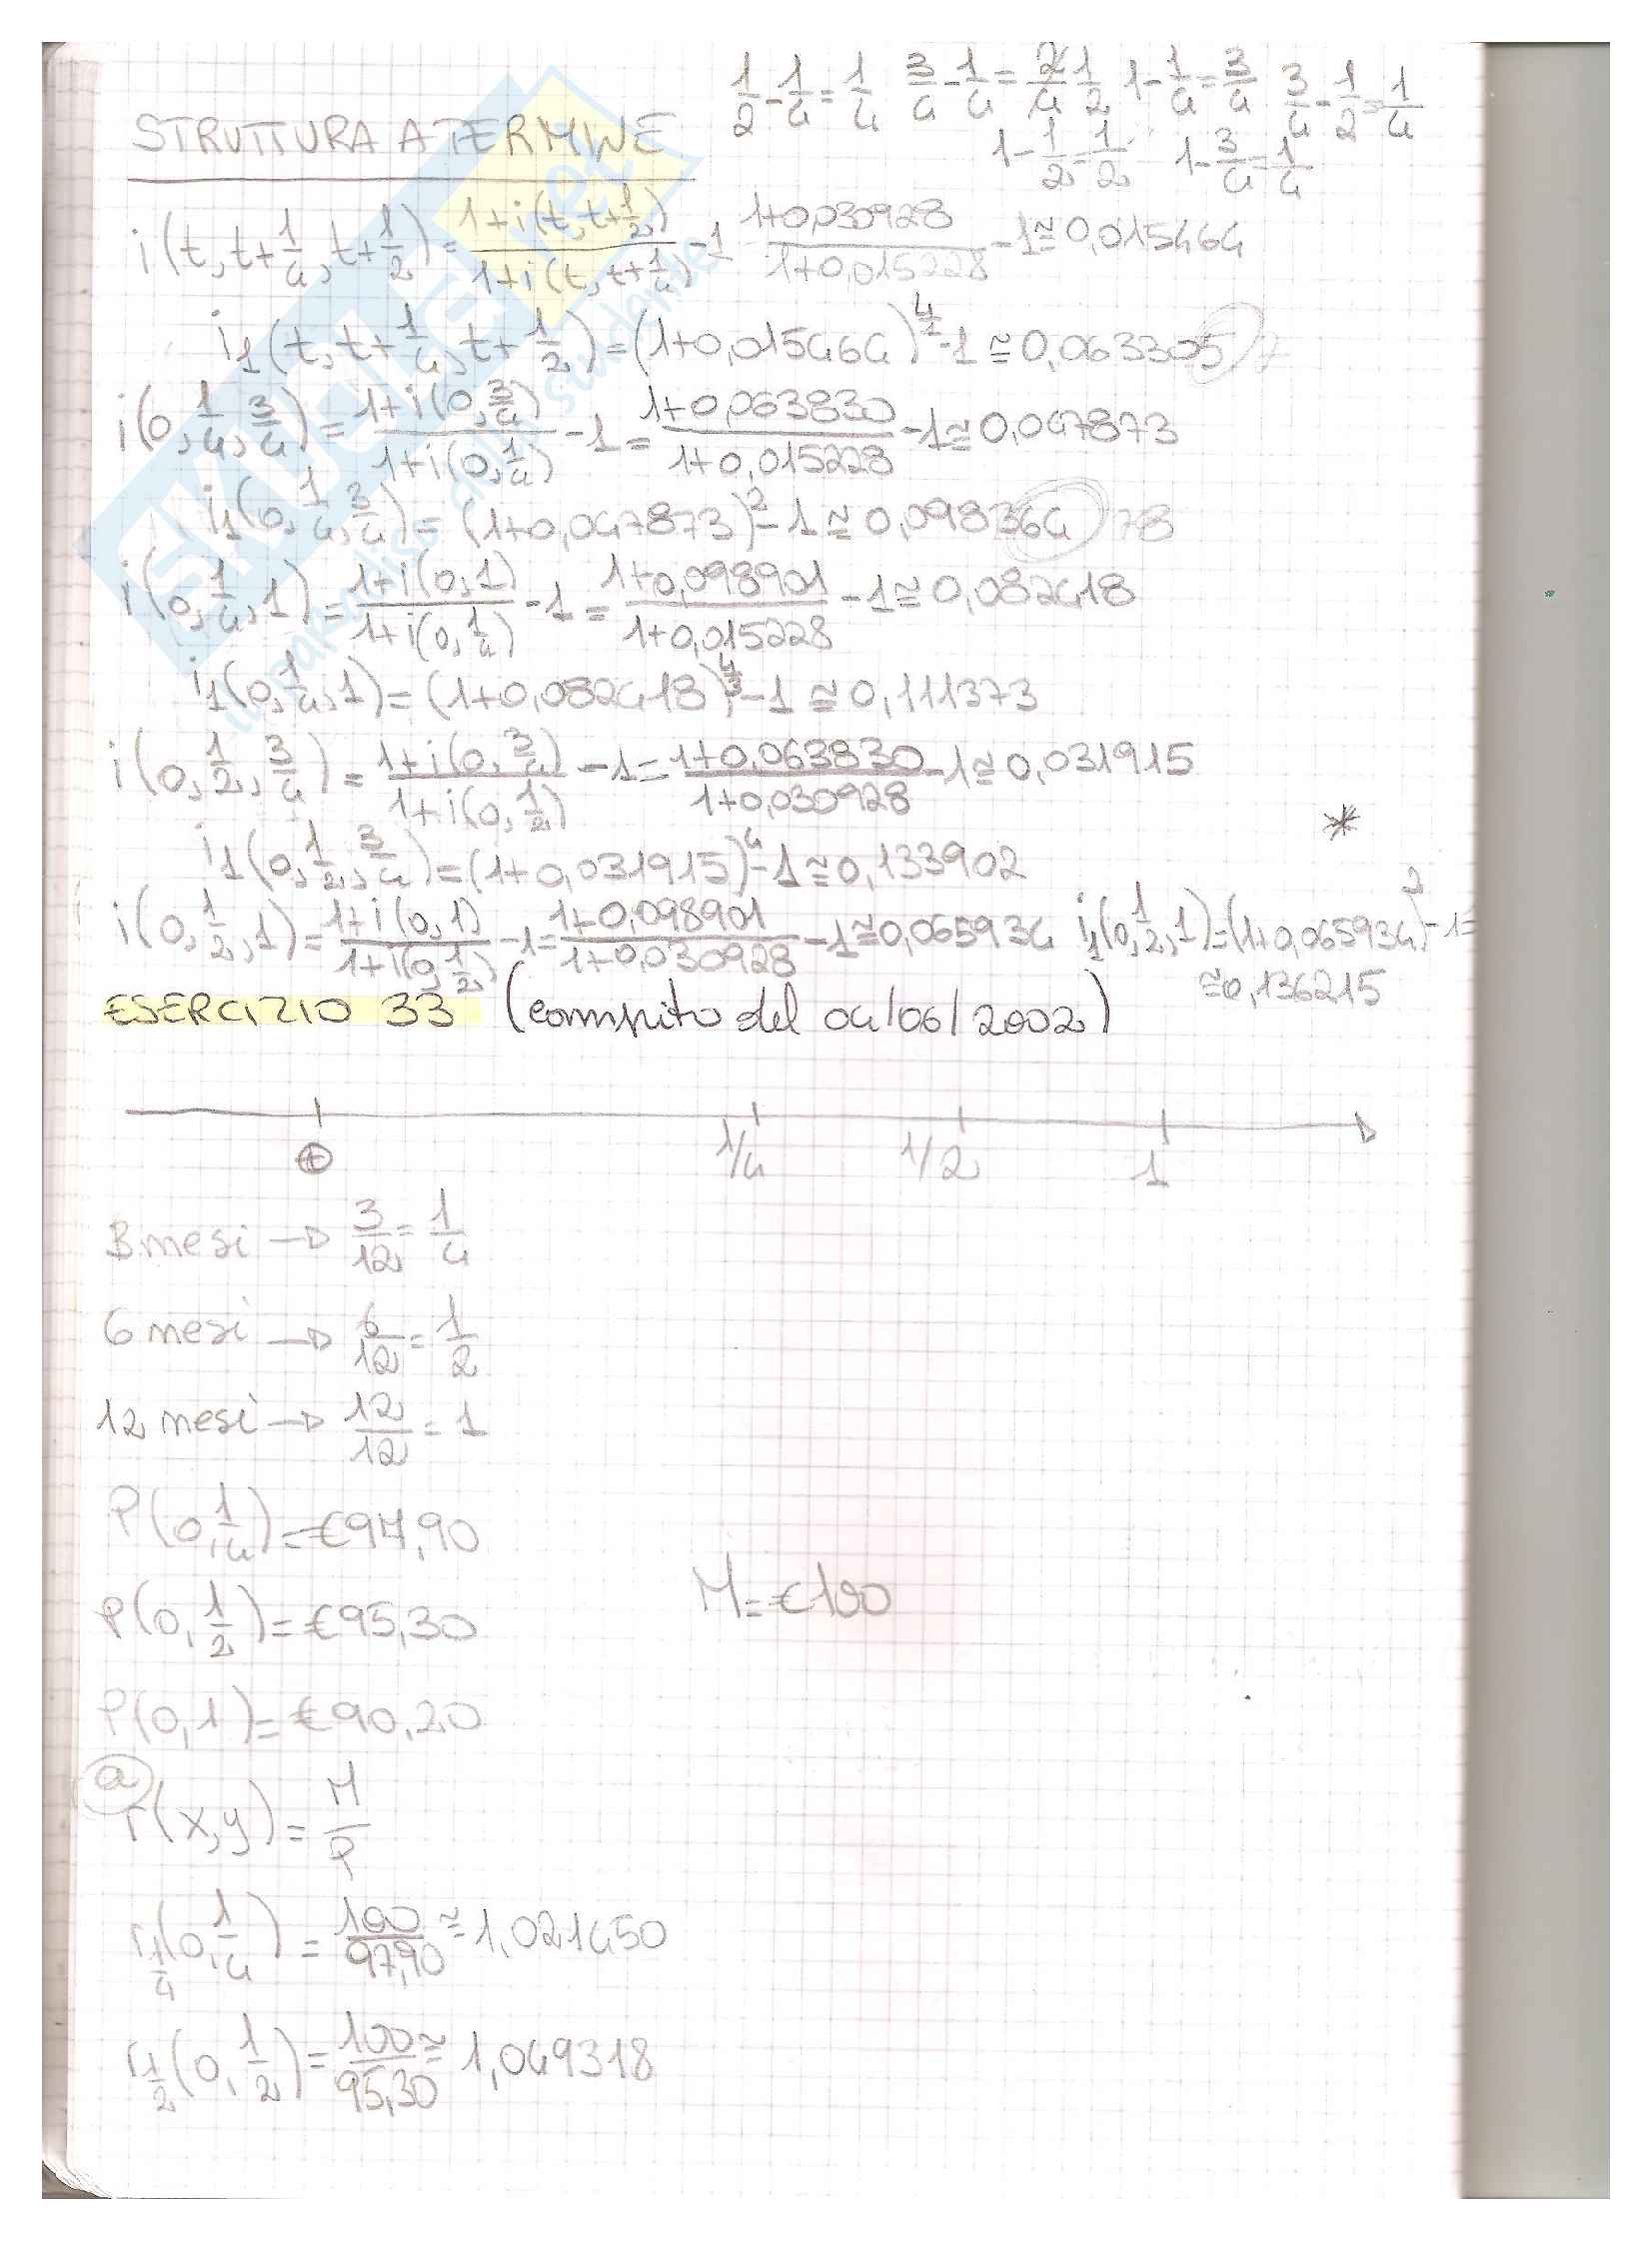 1/2 - 1/4 = 1/4   3/4 - 1/4 = 2/4 1/2   1 - 1/4 = 3/4   3/4 - 1/2 = 1/4
1 - 1/2 = 1/2   1 - 3/4 = 1/4
STRUTTURA A TERMINE
i(t, t+1/4, t+1/2) = (1+i(t, t+1/2))/(1+i(t, t+1/4)) - 1   (1+0,030928)/(1+0,015228) - 1 ≅ 0,015464
i₁(t, t+1/4, t+1/2) = (1+0,015464)^(4/1) - 1 ≅ 0,063305 7
i(0, 1/4, 3/4) = (1+i(0, 3/4))/(1+i(0, 1/4)) - 1 = (1+0,063830)/(1+0,015228) - 1 ≅ 0,047873
i₁(0, 1/4, 3/4) = (1+0,047873)² - 1 ≅ 0,098364 78
i(0, 1/4, 1) = (1+i(0,1))/(1+i(0, 1/4)) - 1 = (1+0,098901)/(1+0,015228) - 1 ≅ 0,082418
i₁(0, 1/4, 1) = (1+0,082418)^(4/3) - 1 ≅ 0,111373
i(0, 1/2, 3/4) = (1+i(0, 3/4))/(1+i(0, 1/2)) - 1 = (1+0,063830)/(1+0,030928) - 1 ≅ 0,031915
*
i₁(0, 1/2, 3/4) = (1+0,031915)⁴ - 1 ≅ 0,133902
i(0, 1/2, 1) = (1+i(0,1))/(1+i(0, 1/2)) - 1 = (1+0,098901)/(1+0,030928) - 1 ≅ 0,065934   i₁(0, 1/2, 1) = (1+0,065934)² - 1 =
≅ 0,136215
ESERCIZIO 33 (compito del 04/06/2002)
0   1/4   1/2   1
3 mesi → 3/12 = 1/4
6 mesi → 6/12 = 1/2
12 mesi → 12/12 = 1
P(0, 1/4) = €97,90
M = €100
P(0, 1/2) = €95,30
P(0, 1) = €90,20
a
r(x,y) = M/P
r_(1/4)(0, 1/4) = 100/97,90 ≅ 1,021450
r_(1/2)(0, 1/2) = 100/95,30 ≅ 1,049318